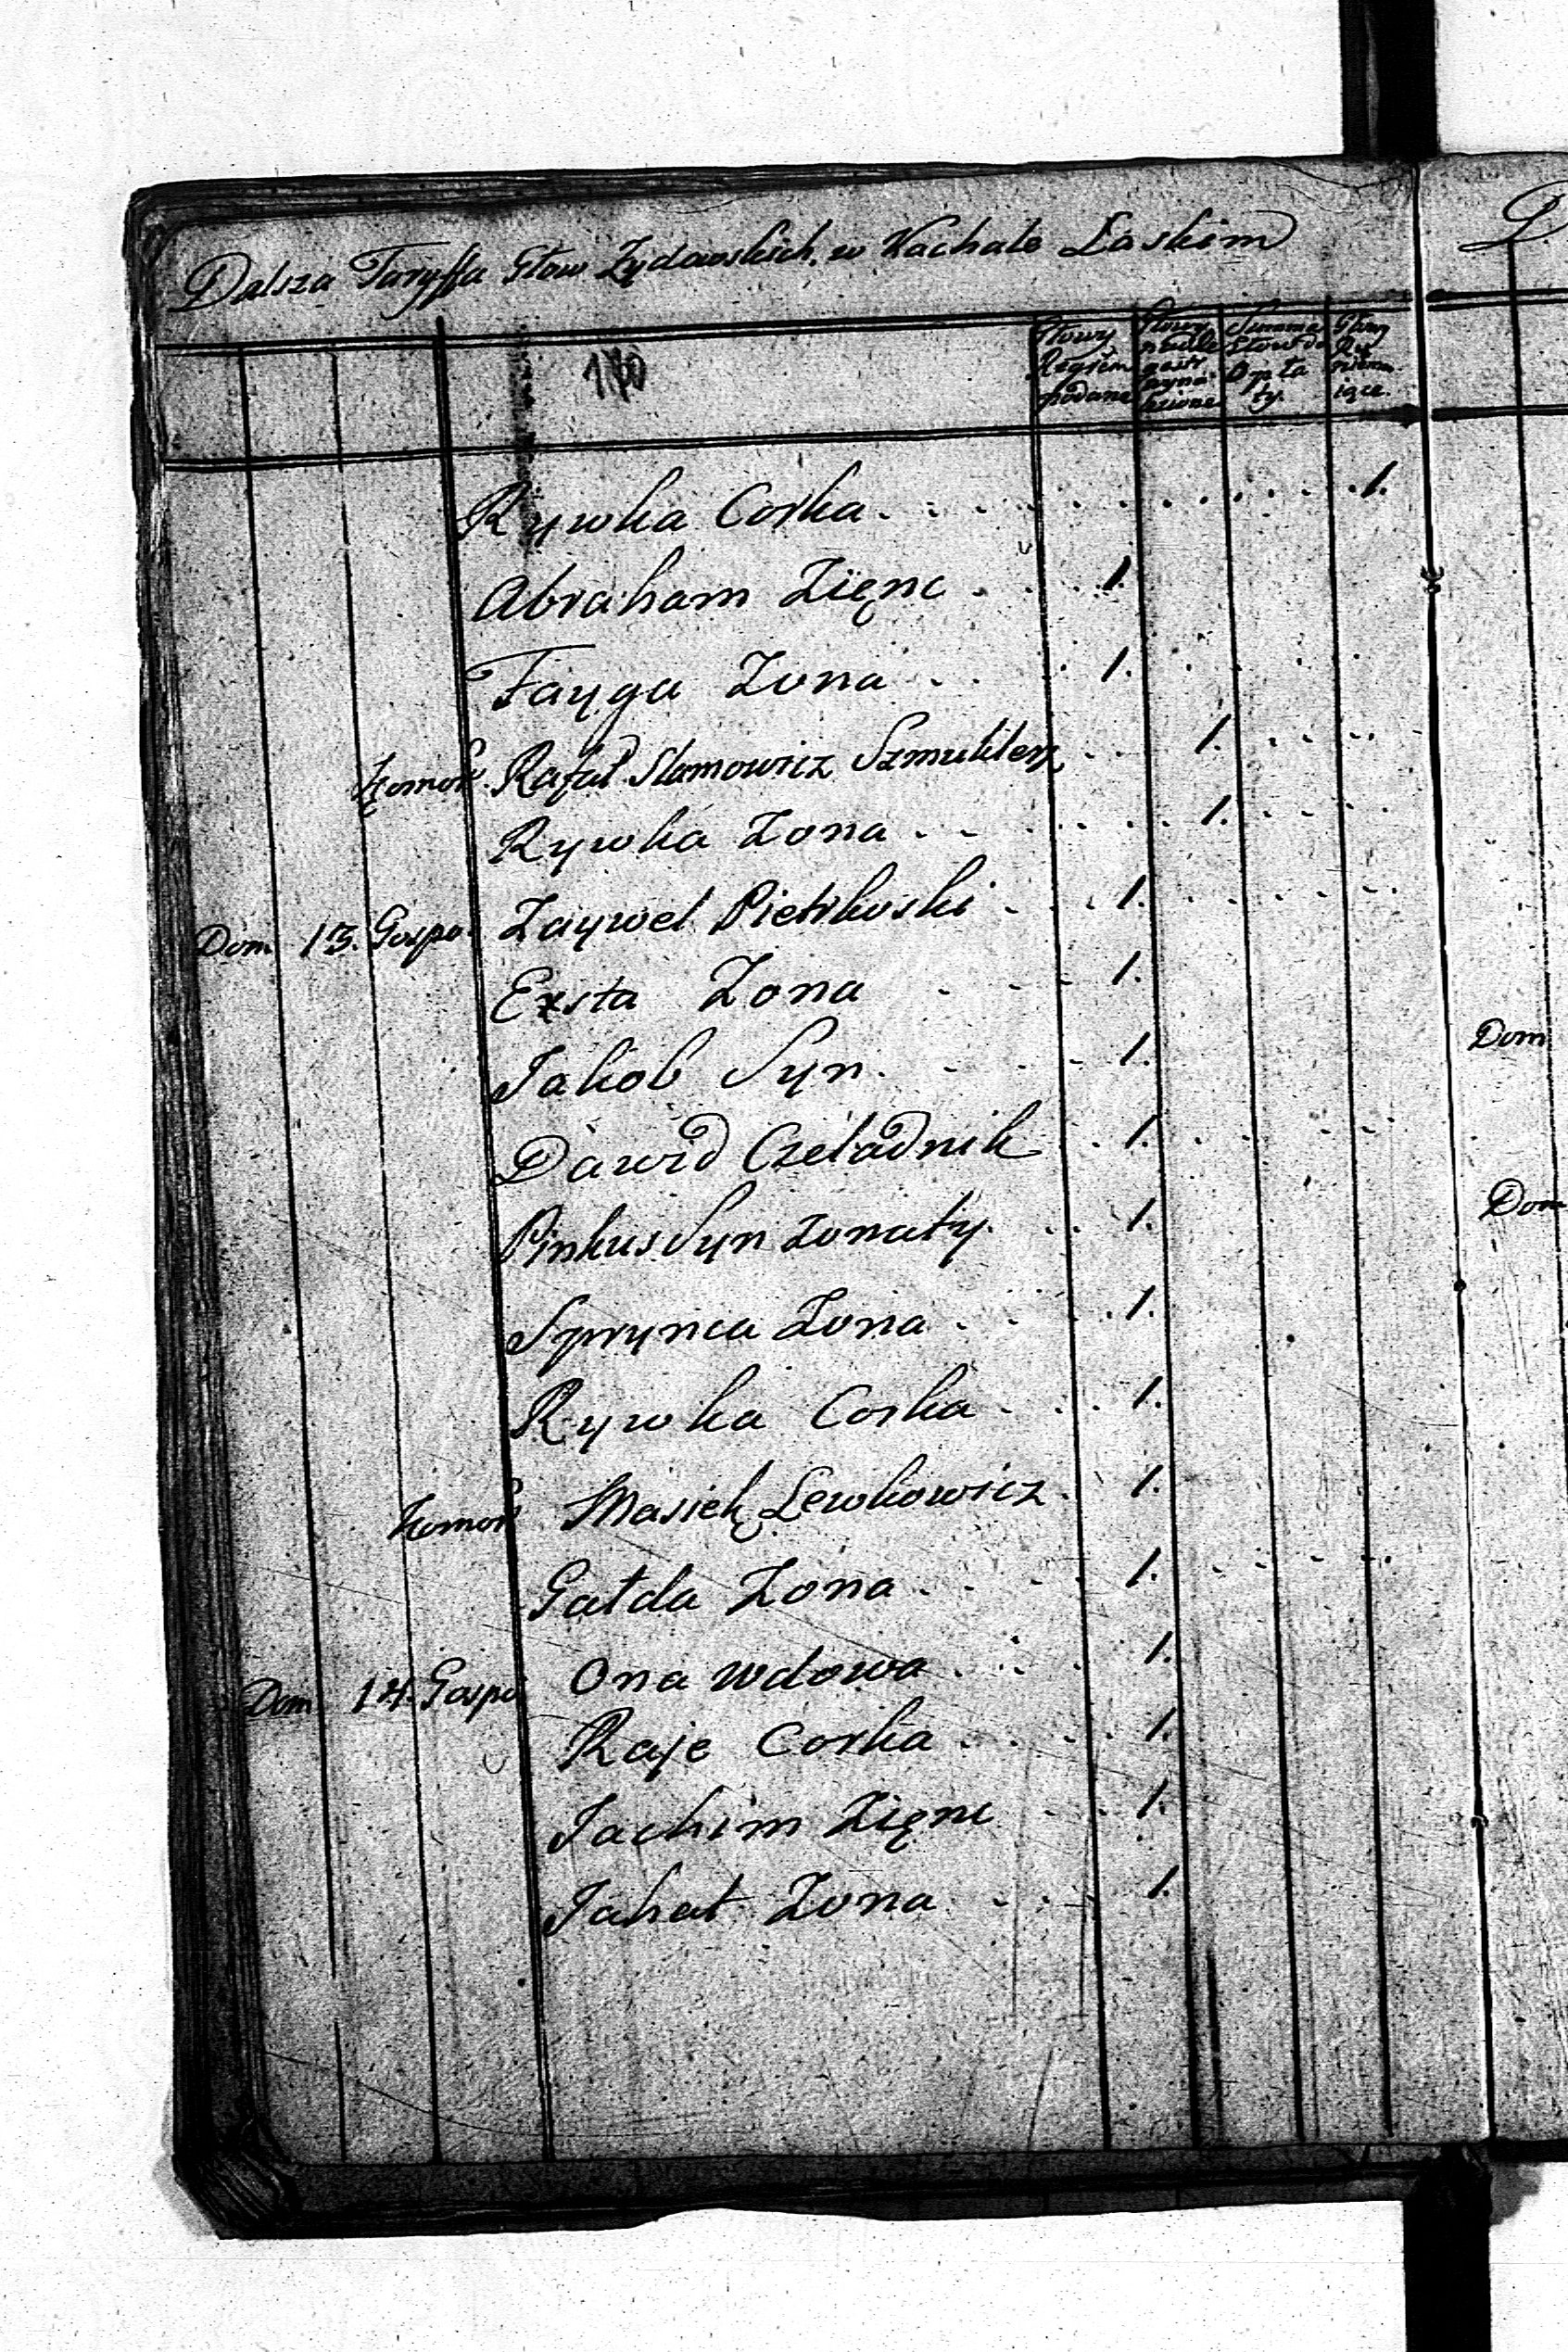 Dalsza Taryffa Głow Zydowskich w Kachale Łaskim
Głowy Regtrem podane
Summa Głow do Opłaty.
Rywka Corka . . . . . . . . . . 1.
Abraham Zięnc . . . 1.
Fayga Zona . . . 1.
Komor. Rafał Slamowicz Szmuklerz . . . 1. . . . .
Rywka Zona . . . . . . 1. . . .
Dom 13. Gospo. Zaywel Pietrkoski . . 1. . . . . .
Exsta Zona . . . 1.
Jakob Syn . . . 1.
Dawid Czeladnik . . 1. . . . . .
Pinkus Syn Zonaty . . 1.
Szprynca Zona . . . 1.
Rywka Corka . . . 1.
Komor Masiek Lewkowicz . 1.
Gałda Zona . . . 1. . . . .
Dom 14. Gospo Ona wdowa . . . 1.
Raje Corka . . . . 1.
Jachim Zięnc . . 1.
Jahet Zona . . . 1.
Dom
Dom